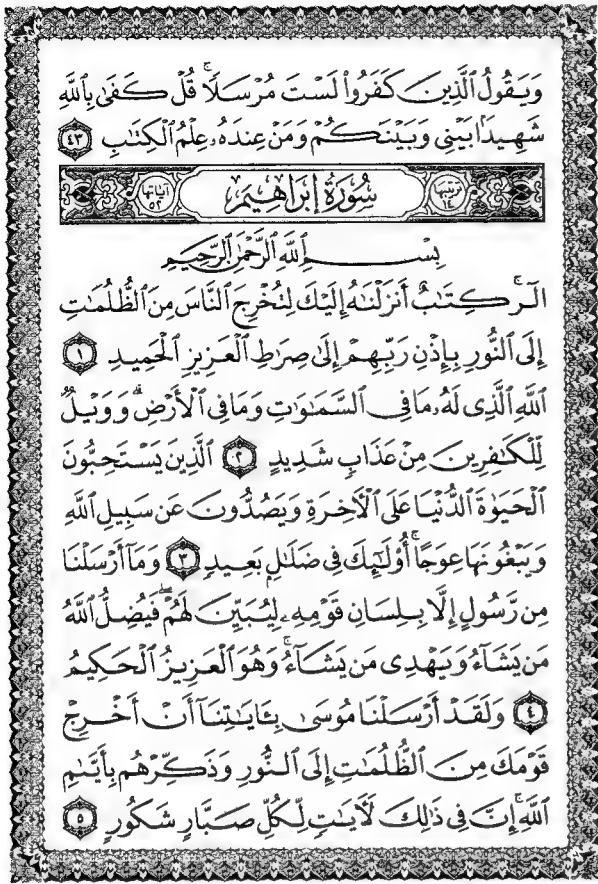 وَيَقُولُ ٱلَّذِينَ كَفَرُوا۟ لَسْتَ مُرْسَلًا ۚ قُلْ كَفَىٰ بِٱللَّهِ
شَهِيدًۢا بَيْنِى وَبَيْنَكُمْ وَمَنْ عِندَهُۥ عِلْمُ ٱلْكِتَٰبِ ٤٣
ترتيبها ١٤ سُورَةُ إِبْرَاهِيمَ آياتها ٥٢
بِسْمِ ٱللَّهِ ٱلرَّحْمَٰنِ ٱلرَّحِيمِ
الٓر ۚ كِتَٰبٌ أَنزَلْنَٰهُ إِلَيْكَ لِتُخْرِجَ ٱلنَّاسَ مِنَ ٱلظُّلُمَٰتِ
إِلَى ٱلنُّورِ بِإِذْنِ رَبِّهِمْ إِلَىٰ صِرَٰطِ ٱلْعَزِيزِ ٱلْحَمِيدِ ١
ٱللَّهِ ٱلَّذِى لَهُۥ مَا فِى ٱلسَّمَٰوَٰتِ وَمَا فِى ٱلْأَرْضِ ۗ وَوَيْلٌ
لِّلْكَٰفِرِينَ مِنْ عَذَابٍ شَدِيدٍ ٢ ٱلَّذِينَ يَسْتَحِبُّونَ
ٱلْحَيَوٰةَ ٱلدُّنْيَا عَلَى ٱلْءَاخِرَةِ وَيَصُدُّونَ عَن سَبِيلِ ٱللَّهِ
وَيَبْغُونَهَا عِوَجًا ۚ أُو۟لَٰٓئِكَ فِى ضَلَٰلٍۭ بَعِيدٍ ٣ وَمَآ أَرْسَلْنَا
مِن رَّسُولٍ إِلَّا بِلِسَانِ قَوْمِهِۦ لِيُبَيِّنَ لَهُمْ ۖ فَيُضِلُّ ٱللَّهُ
مَن يَشَآءُ وَيَهْدِى مَن يَشَآءُ ۚ وَهُوَ ٱلْعَزِيزُ ٱلْحَكِيمُ
٤ وَلَقَدْ أَرْسَلْنَا مُوسَىٰ بِـَٔايَٰتِنَآ أَنْ أَخْرِجْ
قَوْمَكَ مِنَ ٱلظُّلُمَٰتِ إِلَى ٱلنُّورِ وَذَكِّرْهُم بِأَيَّىٰمِ
ٱللَّهِ ۚ إِنَّ فِى ذَٰلِكَ لَءَايَٰتٍ لِّكُلِّ صَبَّارٍ شَكُورٍ ٥